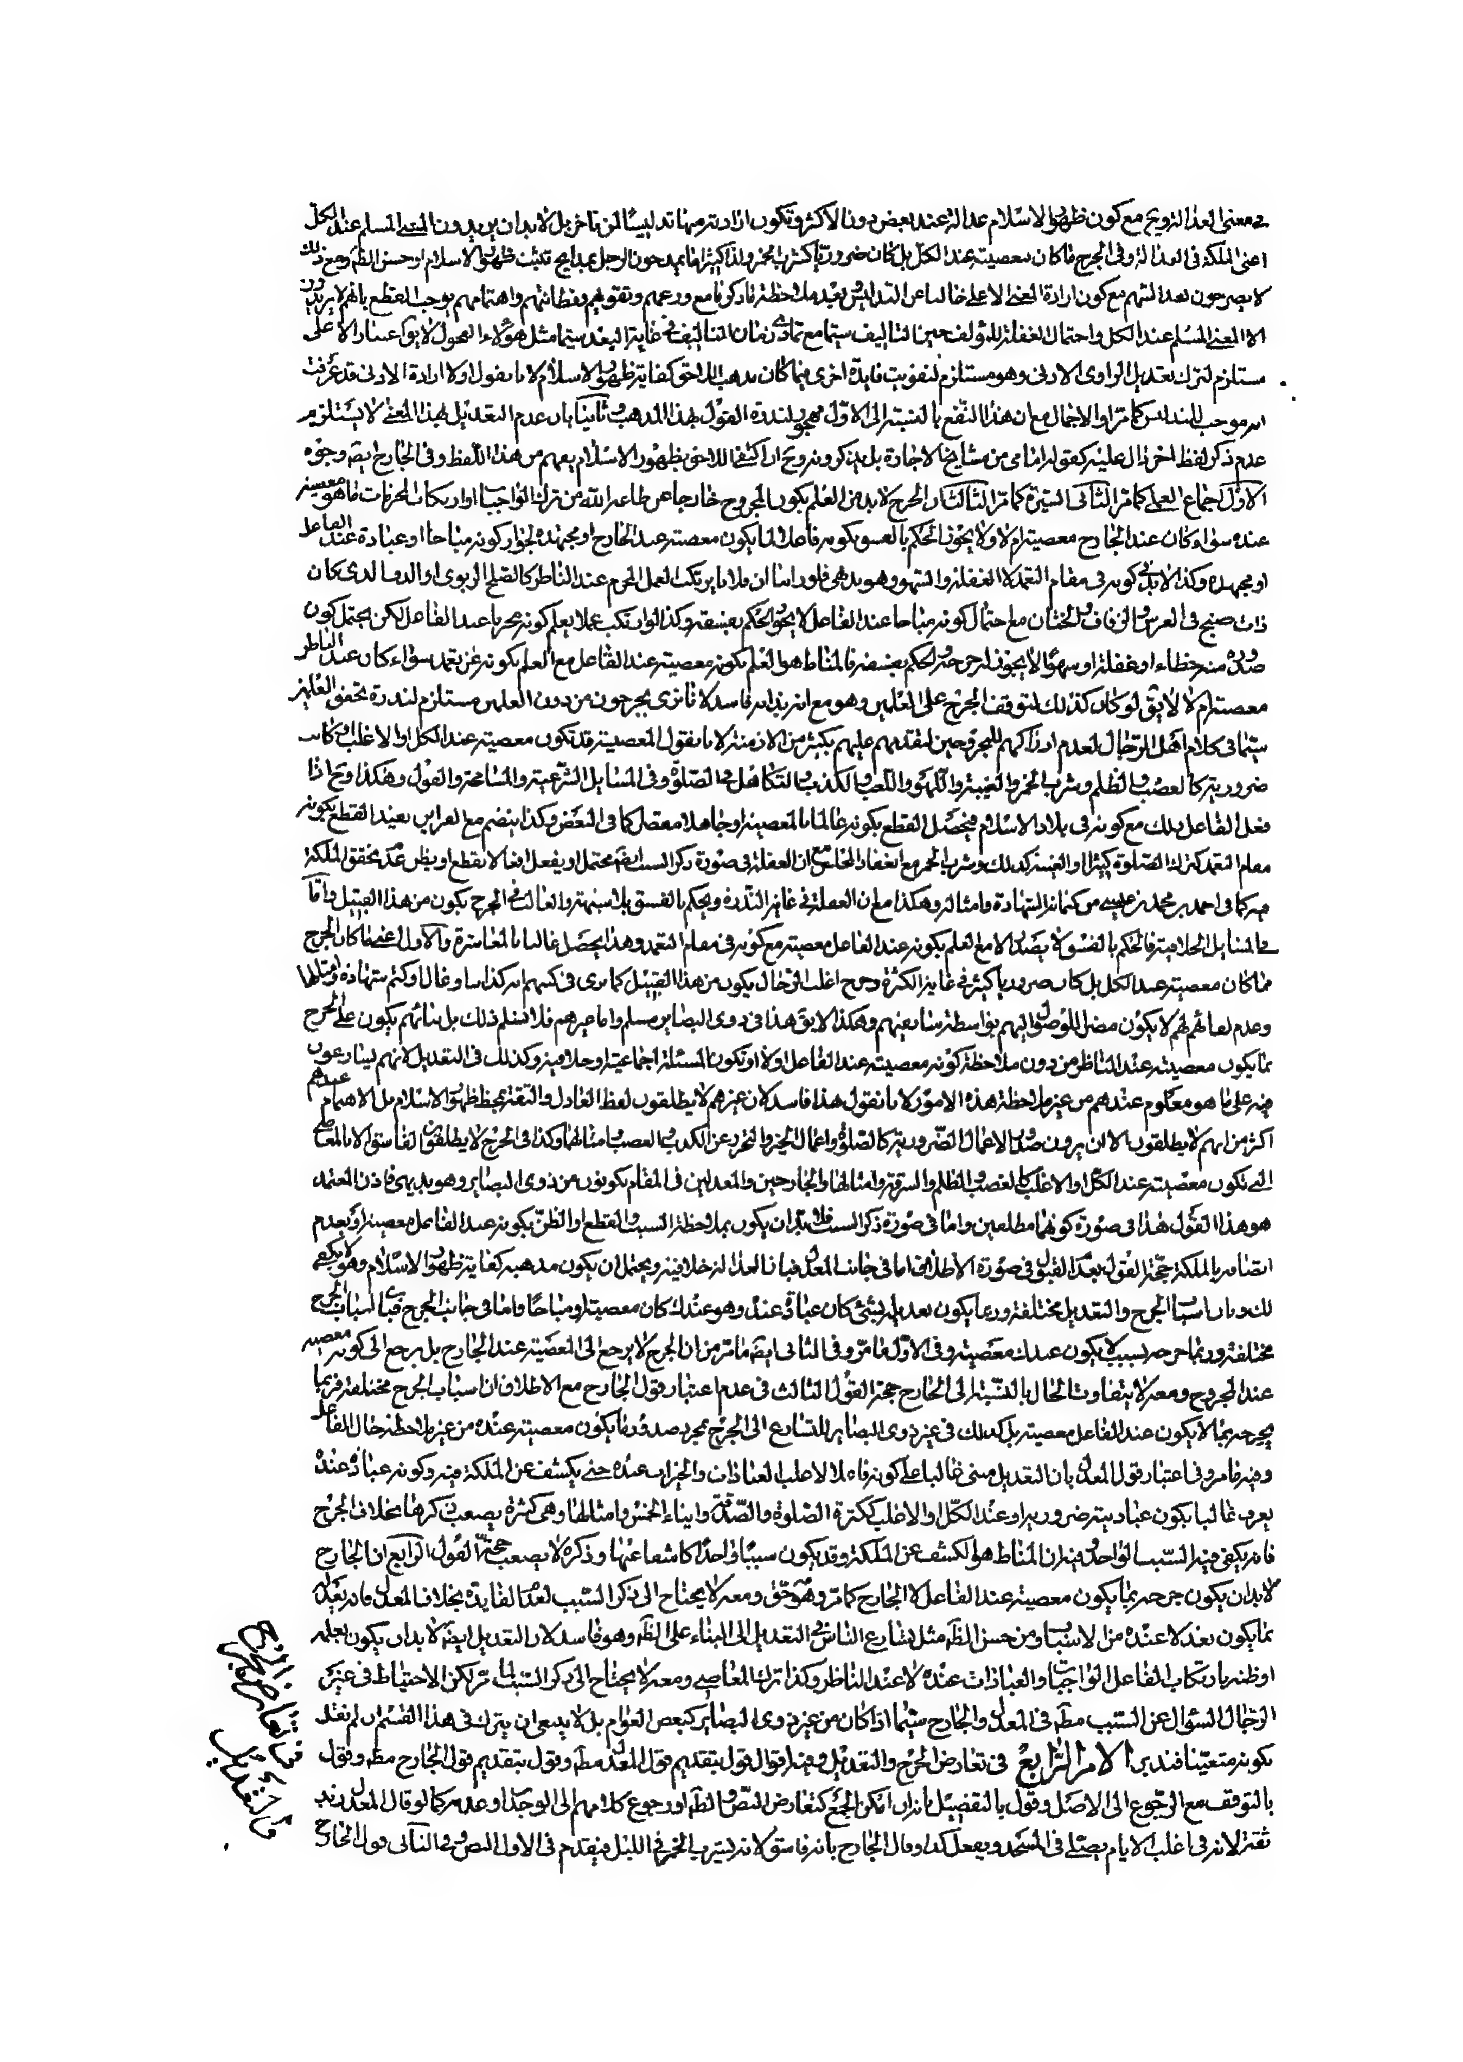 في معنى العدالة وبح مع كون ظهور الاسلام عدالة عند بعض دون الاكثر وتكون ارادته منها تدليسا لمن تاخر بل لا بد ان يريدون المعنى المسلم عند الكل
اعنى الملكة فى العدالة وفى الجرح ما كان معصيته عند الكل بل كان ضروريا كشرب الخمر ولذا كثيرا ما يمدحون الرجل بمدايح تثبت ظهور الاسلام او حسن الظاهر ومع ذلك
لا يصرحون بعدالتهم مع كون ارادة المعنى الاعلى خاليا عن التدليس بعيد ملاحظة ما ذكرنا مع ورعهم وتقويهم وفطانتهم واهتمامهم يوجب القطع بانهم لا يريدون
الا المعنى المسلم عند الكل واحتمال الغفلة للمؤلف حين التاليف سيما مع تمادى زمان التاليف فى غاية البعد سيما مثل هؤلاء الفحول لا يق اعتبار الاعلى
مستلزم لترك تعديل الراوى الادنى وهو مستلزم لتفويت فايدة اخرى فيما كان مذهب اللاحق كفاية ظهور الاسلام لانا نقول اولا ارادة الادنى قد عرفت
انه موجب للتدليس كما مر او الاجمال مع ان هذا النفع بالنسبة الى الاول مهجور لندرة القول بهذا المذهب وثانيا بان عدم التعديل بهذا المعنى لا يستلزم
عدم ذكر لفظ اخر دال عليه كقوله امامى من مشايخ الاجازة بل يذكرونه وبح ان اكتفى اللاحق بظهور الاسلام يفهم من هذا اللفظ وفى الجارح ايضا وجوه
الاول اجماع العلماء كما مر الثانى السيرة كما مر الثالث ان الجرح لا بد من العلم بكون المجروح خارجا عن طاعة الله من ترك الواجبات او ارتكاب المحرمات فما هو معصيته
عنده سواء كان عند الجارح معصيته ام لا ولا يجوز الحكم بالفسق بكونه فاعلا لما يكون معصيته عند الجارح او مجتهده لجواز كونه مباحا او عبادة عند الفاعل
او مجتهده وكذا لا بد فى كونه فى مقام التعمد لا الغفلة والسهو وهو بديهى فلو راينا ان فلانا يرتكب العمل المحرم عند الناظر كالصلح الربوى او الدف الذى كان
ذات صنج فى العرس والزفاف والختان مع احتمال كونه مباحا عند الفاعل لا يجوز الحكم بفسقه وكذا لو ارتكب عملا يعلم كونه محرما عند الفاعل لكن يحتمل كون
صدوره منه خطاء او غفلة او سهوا لا يجوز لنا جرحه والحكم بفسقه فالمناط هو العلم بكونه معصيته عند الفاعل مع العلم بكونه عن تعمد سواء كان عند الناظر
معصيته ام لا لا يق لو كان كذلك لتوقف الجرح على العلمين وهو مع انه بذاته فاسد لانا نرى يجرحون من دون العلمين مستلزم لندرة تحقق العلمين
سيما فى كلام اهل الرجال لعدم ادراكهم للمجروحين لتقدمهم عليهم بكثير من الازمنة لانا نقول المعصية قد تكون معصيته عند الكل او الاغلب وكانت
ضرورية كالغصب والظلم وشرب الخمر والغيبة واللهو واللعب والكذب والتكاهل فى الصلوة وفى المسايل الشرعية والمسامحة والقول وهكذا وبح اذا
فعل الفاعل ذلك مع كونه فى بلاد الاسلام فيحصل القطع بكونه عالما بالمعصية او جاهلا مقصرا كما فى البعض وكذا ينضم مع القراين بعيد القطع بكونه
مقام التعمد كترك الصلوة كثيرا والغيبة كذلك وشرب الخمر مع انعقاد المجلس مع ان الغفلة فى صورة ذكر السبب ايضا محتمل او يفعل افعالا نقطع او يظن عدم تحقق الملكة
فيه كما فى احمد بن محمد بن عيسى من كتمانه الشهادة وامثاله وهكذا مع ان الغفلة فى غاية الندرة ويحكم بالفسق بلا شبهة والغالب فى الجرح يكون من هذا القبيل واما
فى المسايل الخلافية فالحكم بالفسق لا يصدر الا مع العلم بكونه عند الفاعل معصيته مع كونه فى مقام التعمد وهذا يحصل غالبا بالمعاشرة والاول اعنى ما كان الجرح
مما كان معصيته عند الكل بل كان ضروريا كثير فى غاية الكثرة وجرح اغلب الرجال يكون من هذا القبيل كما نرى فى كتبهم انه كذاب او غال او كتم شهادة وامثالها
وعدم لقائهم لهم لا يكون مضرا للوصول اليهم بواسطة مشايخهم وهكذا لا يق هذا فى ذوى البصاير مسلم واما غيرهم فلا نسلم ذلك بل بنائهم يكون على الجرح
بما يكون معصيته عند الناظر من دون ملاحظة كونه معصيته عند الفاعل ام لا او تكون المسئلة اجماعية او خلافية وكذلك فى التعديل لانهم يسارعون
فيه على ما هو معلوم عندهم من غير ملاحظة هذه الامور لانا نقول هذا فاسد لان غيرهم لا يطلقون لفظ العادل والثقة بمحض ظهور الاسلام بل الاهتمام عندهم
اكثر من انهم لا يطلقون الا ان يرون صدور الاعمال الضرورية كالصلوة واعمال الخير والتحرز عن الكذب والغصب وامثالها وكذا فى الجرح لا يطلقون الفاسق الا بالمعاصى
التى تكون معصيته عند الكل او الاغلب كالغصب والظلم والسرقة وامثالها والجارحين والمعدلين فى المقام يكونون من ذوى البصاير وهو بديهى فاذن المعتمد
هو هذا القول هذا فى صورة كونهما مطلعين واما فى صورة ذكر السبب فلا بد ان يكون بملاحظة السبب والقطع او الظن بكونه عند الفاعل معصية او بعدم
اتصافه بالملكة حجة القول بعدم القبول فى صورة الاطلاق اما فى جانب المعدل فبان العدالة خلافية ويحتمل ان يكون مذهبه كفاية ظهور الاسلام وهو لا يكفى
لك وبان اسباب الجرح والتعديل مختلفة وربما يكون تعديله بشئ كان عبادة عنده وهو عندك كان معصيته او مباحا واما فى جانب الجرح فبان اسباب الجرح
مختلفة وربما جرحه بسبب لا يكون عندك معصيته وفى الاول ما مر وفى الثانى ايضا ما مر من ان الجرح لا يرجع الى المعصية عند الجارح بل يرجع الى كونه معصيته
عند المجروح ومعه لا يتفاوت الحال بالنسبة الى الجارح حجة القول الثالث فى عدم اعتبار قول الجارح مع الاطلاق ان اسباب الجرح مختلفة فربما
يجرحه بما لا يكون عند الفاعل معصيته بل كذلك فى غير ذوى البصاير للتسارع الى الجرح بمجرد صدور ما يكون معصيته عنده من غير ملاحظة حال الفاعل
وفيه ما مر وفى اعتبار قول المعدل بان التعديل مبنى غالبا على كونه فاعلا لاغلب العبادات والخيرات عنده حتى يكشف عن الملكة فيه وكونه عبادة عنده
يعرف غالبا بكون عباديته ضرورية او عند الكل او الاغلب ككثرة الصلوة والصدقة وايتاء الخمس وامثالها وهى كثيرة يصعب ذكرها بخلاف الجرح
فانه يكفى فيه السبب الواحد وفيه ان المناط هو الكشف عن الملكة وقد يكون سببا واحدا كاشفا عنها وذكره لا يصعب حجة القول الرابع ان الجارح
لا بد ان يكون جرحه بما يكون معصيته عند الفاعل لا الجارح كما مر وهو حق ومعه لا يحتاج الى ذكر السبب لعدم الفايدة بخلاف المعدل فانه يعدل
بما يكون بعدلا عنده من الاسباب ومن حسن الظاهر مثل تسارع الناس فى التعديل الى البناء على الظاهر وهو فاسد لان التعديل ايضا لا بد ان يكون بعلمه
او ظنه بارتكاب الفاعل الواجبات والعبادات عنده لا عند الناظر وكذا ترك المعاصى ومعه لا يحتاج الى ذكر السبب لما مر لكن الاحتياط فى غير
الرجال السؤال عن السبب مطلقا فى المعدل والجارح سيما اذا كان من غير ذوى البصاير كبعض العوام بل لا ينبغى ان يترك فى هذا القسم ان لم نقل
بكونه متعينا فتدبر الامر الرابع فى تعارض الجرح والتعديل وفيه اقوال قول بتقديم قول المعدل مطلقا وقول بتقديم قول الجارح مطلقا وقول
بالتوقف مع الرجوع الى الاصل وقول بالتفصيل بانه ان امكن الجمع كتعارض النص والظاهر او رجوع كلامهم الى الوجدان او عدمه كما لو قال المعدل زيد
ثقة لانه فى اغلب الايام يصلى فى المسجد ويفعل كذا وقال الجارح بانه فاسق لانه يشرب الخمر فى الليل فيقدم فى الاول النص وفى الثانى قول الجارح
فى تعارض الجرح
والتعديل